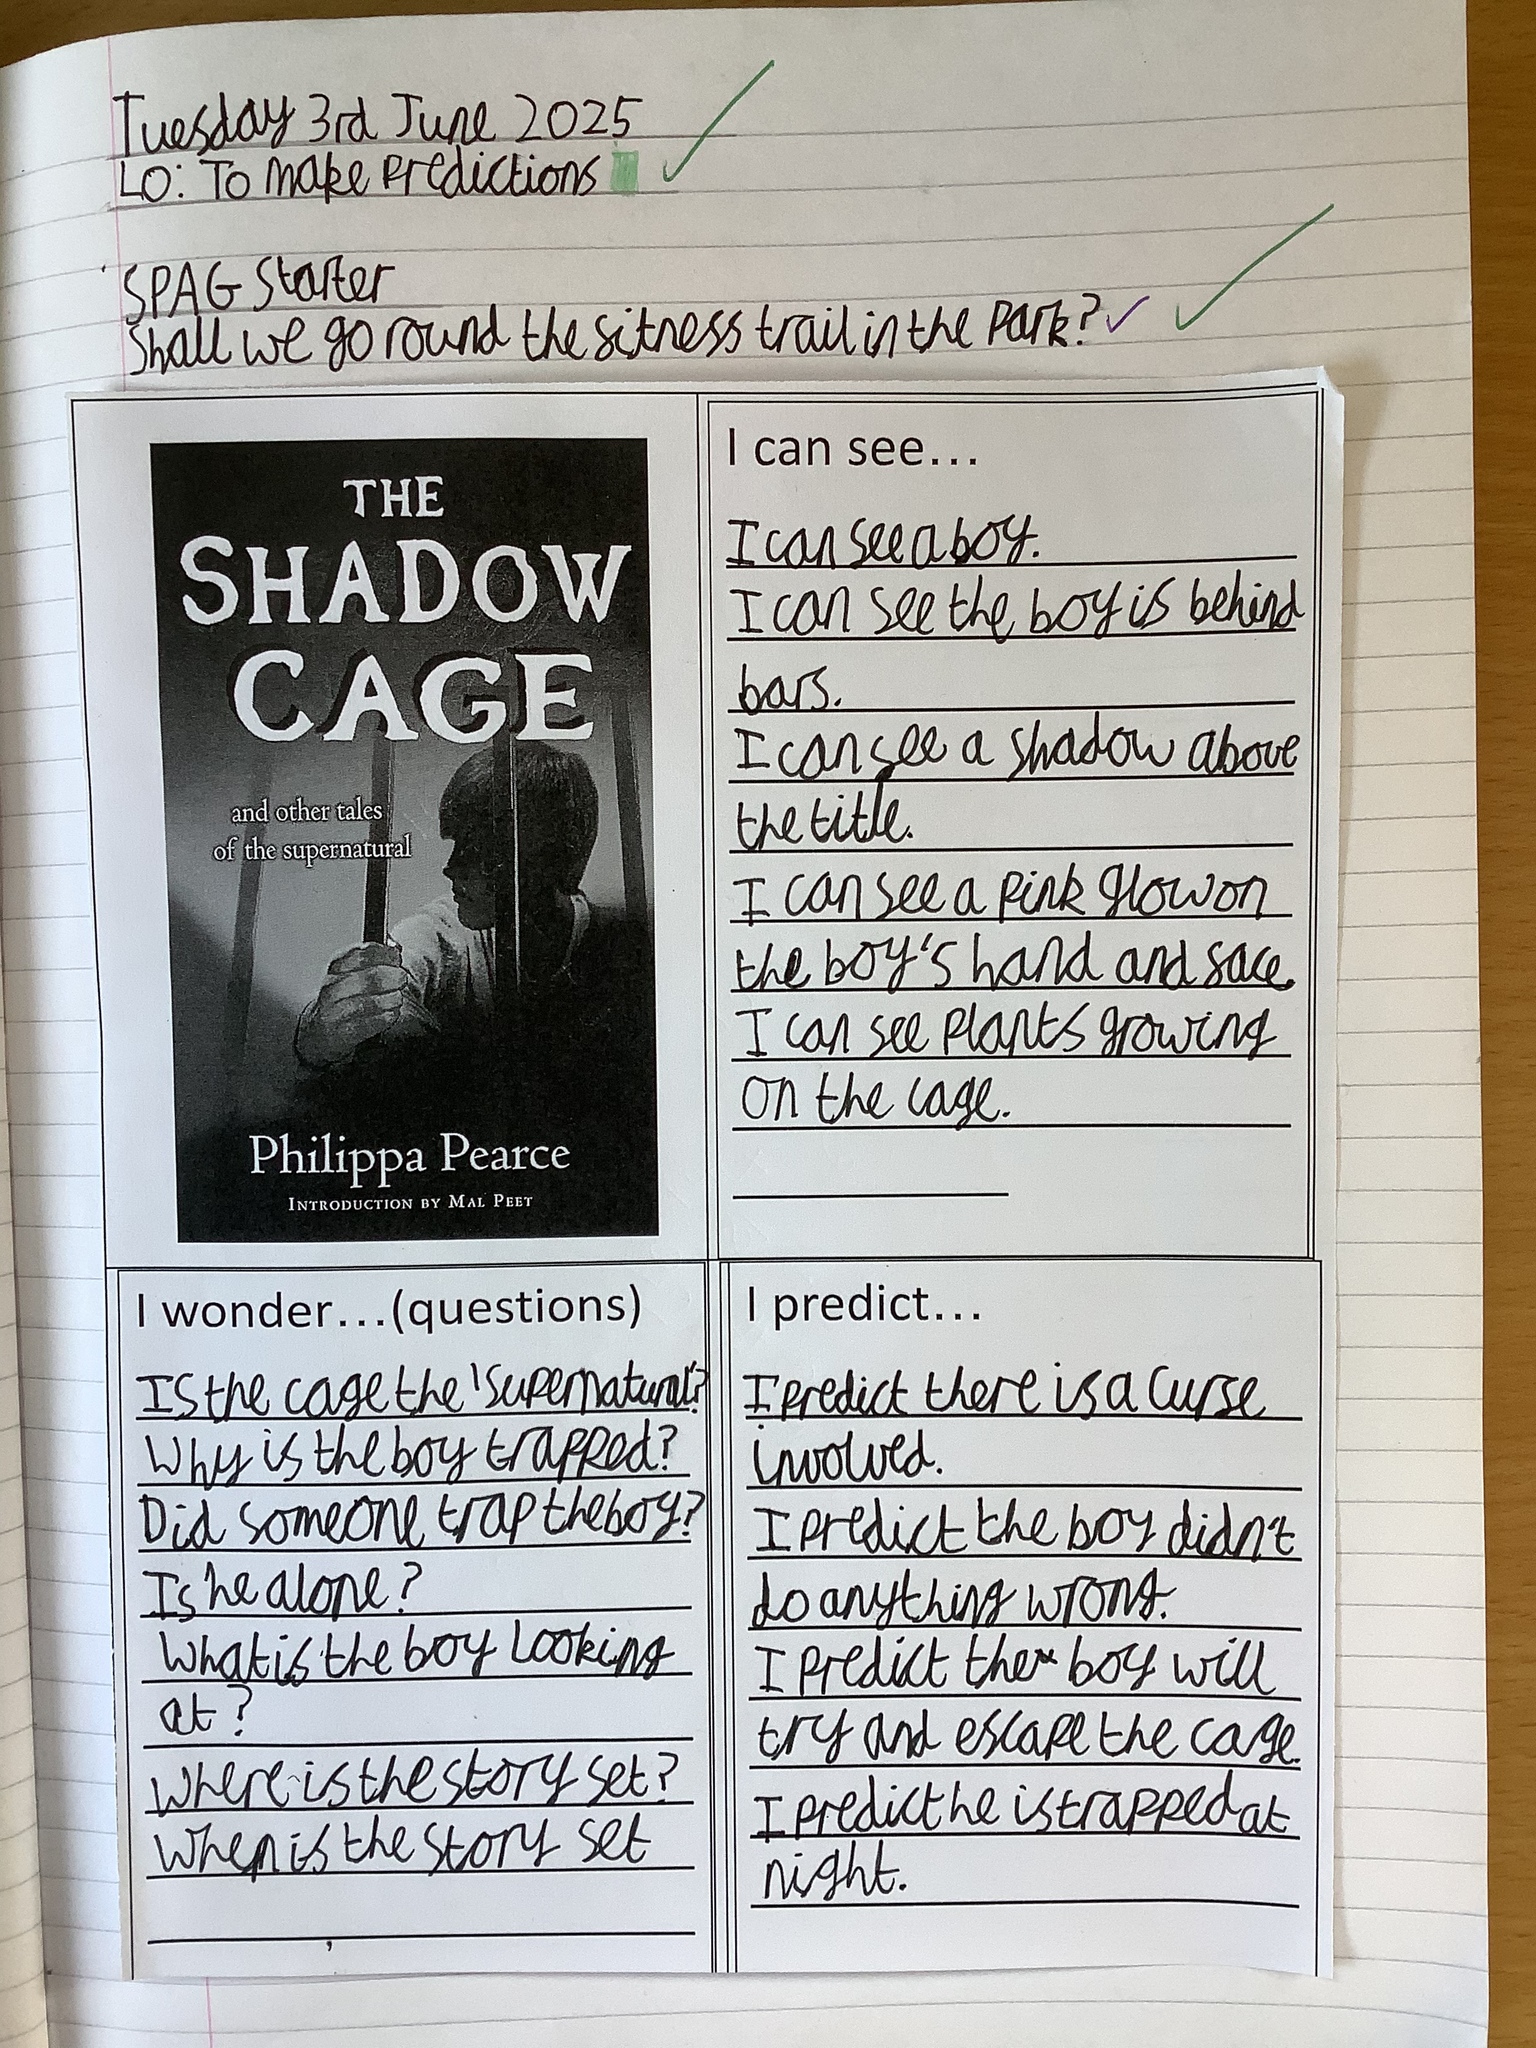 Tuesday 3rd June 2025
LO: To make predictions
SPAG Starter
Shall we go round the sitness trail in the park?
THE
SHADOW
CAGE
and other tales
of the supernatural
Philippa Pearce
INTRODUCTION BY MAL PEET
I can see...
I can see a boy.
I can see the boy is behind
bars.
I can see a shadow above
the title.
I can see a pink glow on
the boy's hand and sace.
I can see plants growing
on the cage.
I wonder...(questions)
Is the cage the 'supernatural'?
Why is the boy trapped?
Did someone trap the boy?
Is he alone?
What is the boy looking
at?
Where is the story set?
When is the story set
I predict...
I predict there is a curse
involved.
I predict the boy didn't
do anything wrong.
I predict the boy will
try and escape the cage.
I predict he is trapped at
night.